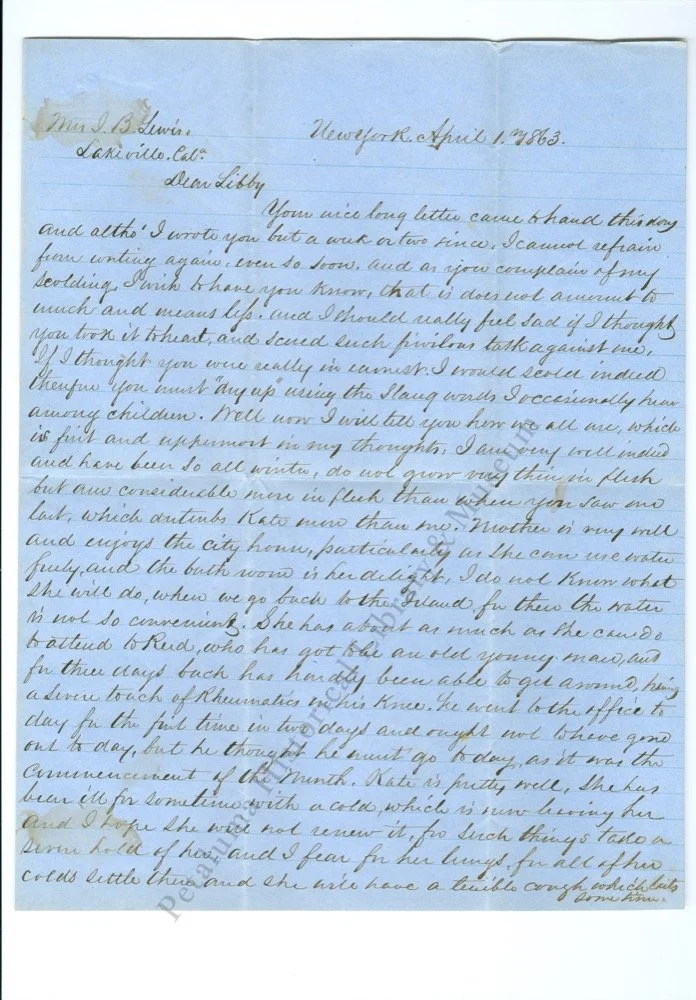 Mrs J. B. Lewis.
New York. April 1. 1863.
Lakeville. Cala
Dear Libby
Your nice long letter came to hand this day
and altho' I wrote you but a week or two since, I cannot refrain
from writing again, even so soon. and as you complain of my
scolding, I wish to have you know, that is does not amount to
much and means less. and I should really feel sad if I thought
you took it to heart, and scored such frivilous task against me,
If I thought you were really in earnest. I would scold indeed
therefore you must "dry up" using the Slang words I occasionally hear
among children. Well now I will tell you how we all are, which
is first and uppermost in my thoughts, I am very well indeed
and have been so all winter, do not grow very thin in flesh
but am considerable more in flesh than when you saw me
last, which disturbs Kate more than me. Mother is very well
and enjoys the city home, particularly as she can use water
freely, and the bath room is her delight, I do not Know what
she will do, when we go back to the Island, for there the water
is not so convenient. She has about as much as she can do
to attend to Reid, who has got to be an old young man, and
for three days back has hardly been able to get around, having
a severe touch of Rheumatics in his Knee. he went to the office to
day for the first time in two days and ought not to have gone
out to day, but he thought he must go to day, as it was the
commencement of the Month. Kate is pretty well, She has
been ill for sometime with a cold, which is now leaving her
and I hope she will not renew it, for such things take a
severe hold of her, and I fear for her lungs, for all of her
colds settle there and she will have a terrible cough which lasts
some time.
Petaluma Historical Library & Museum